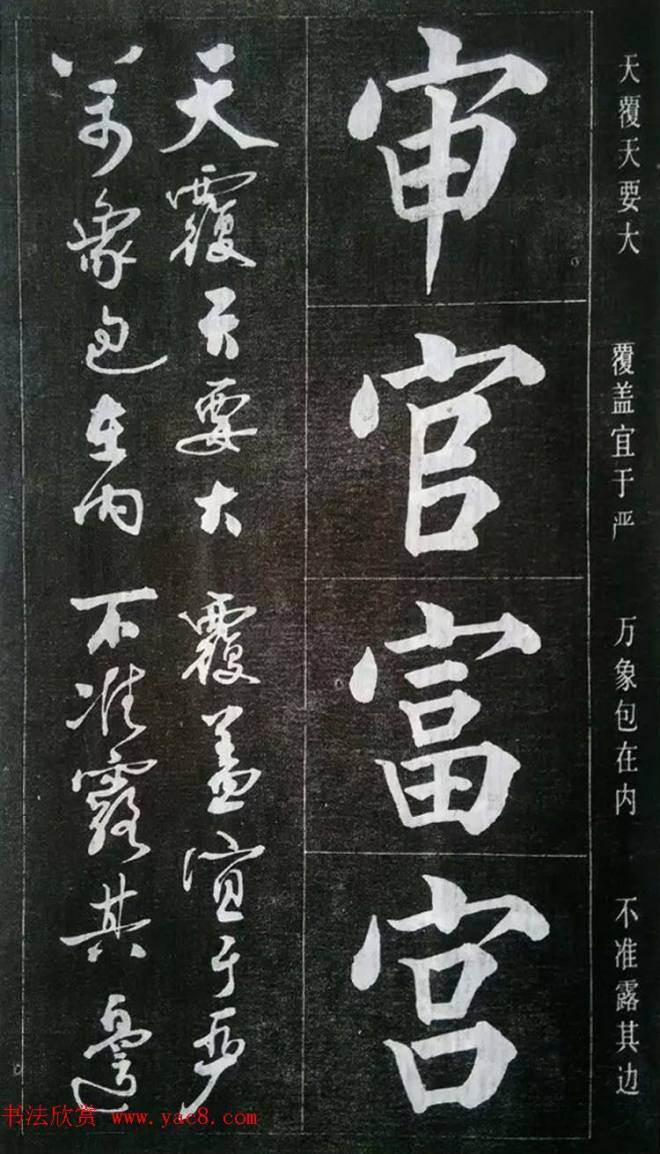 天覆天要大 覆盖宜于严 万象包在内 不准露其边
审官富宫
天覆天要大 覆盖宜于严
万象包在内 不准露其边
书法欣赏 www.yac8.com